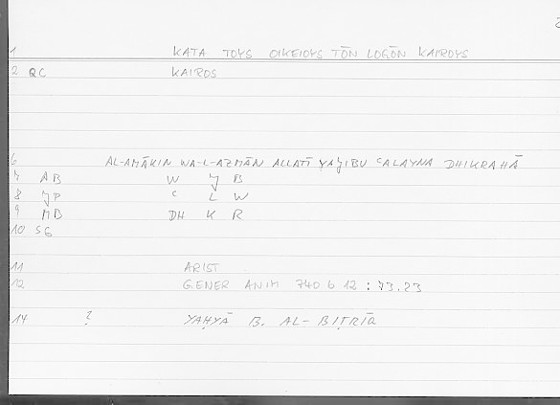 1 KATA TOYS OIKEIOYS TŌN LOGŌN KAIROYS
2 QC KAIROS
6 AL-AMĀKIN WA-L-AZMĀN ALLATĪ YAJIBU ʿALAYNA DHIKRAHĀ
7 AB W J B
8 JP ʿ L W
9 MB DH K R
10 SG
11 ARIST
12 GENER ANIM 740 b 12 : 73.23
14 ? YAḤYĀ B. AL-BIṬRĪQ